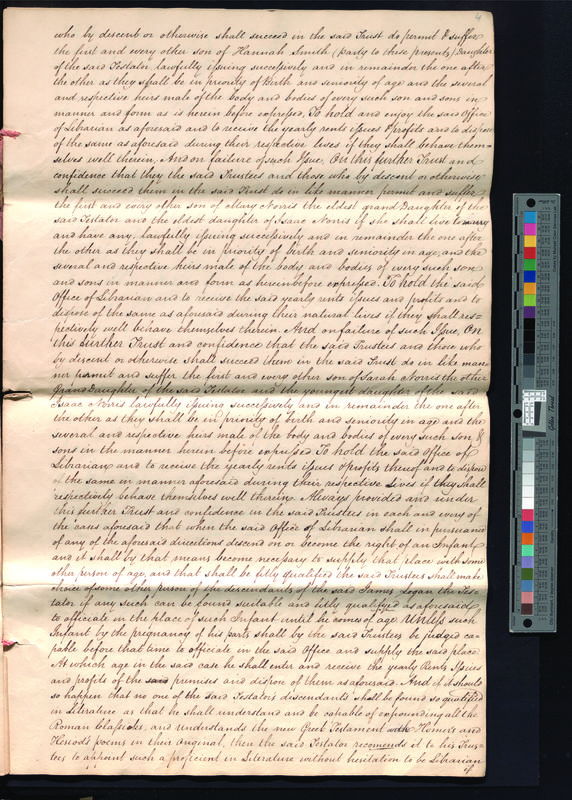 4
who by descent or otherwise shall succeed in the said Trust do permit & suffer
the first and every other son of Hannah Smith (party to these presents) Daughter
of the said Testator lawfully issuing successively and in remainder the one after
the other as they shall be in priority of Birth and seniority of age and the several
and respective heirs male of the body and bodies of every such son and sons in
manner and form as is herein before expressed, To hold and enjoy the said Office
of Librarian as aforesaid and to receive the yearly rents issues & profits and to dispose
of the same as aforesaid during their respective lives if they shall behave them-
selves well therein, And on failure of such Issue, On this further Trust and
confidence that they the said Trustees and those who by descent or otherwise
shall succeed them in the said Trust do in like manner permit and suffer
the first and every other son of Mary Norris the eldest grand Daughter of the
said Testator and the eldest daughter of Isaac Norris if she shall live to marry
and have any, lawfully issuing successively and in remainder the one after
the other as they shall be in priority of birth and seniority in age, and the
several and respective heirs male of the body, and bodies of every such son
and sons in manner and form as hereinbefore expressed. To hold the said
Office of Librarian and to receive the said yearly rents issues and profits and to
dispose of the same as aforesaid during their natural lives if they shall res-
pectively well behave themselves therein. And on failure of such Issue, On
this further Trust and confidence that the said Trustees and those who
by descent or otherwise shall succeed them in the said Trust do in like man-
ner permit and suffer the first and every other son of Sarah Norris the other
Grand Daughter of the said Testator and the youngest daughter of the said
Isaac Norris lawfully issuing successively and in remainder the one after
the other as they shall be in priority of birth and seniority in age and the
several and respective heirs male of the body and bodies of every such son &
sons in the manner herein before expressed To hold the said Office of
Librarian and to receive the yearly rents issues & profits thereof and to dispose
of the same in manner aforesaid during their respective Lives if they Shall
respectively behave themselves well therein. Always provided and under
this further Trust and confidence in the said Trustees in each and every of
the cases aforesaid that when the said Office of Librarian shall in pursuance
of any of the aforesaid directions descend on or become the right of an Infant
and it shall by that means become necessary to supply that place with some
other person of age, and that shall be fitly qualified the said Trustees shall make
choice of some other person of the descendants of the said James Logan the Tes-
tator if any such can be found suitable and fitly qualifyed as aforesaid
to officiate in the place of such Infant until he comes of age Unless such
Infant by the pregnancy of his parts shall by the said Trustees be judged ca-
pable before that time to officiate in the said Office and supply the said place
At which age in the said case he shall enter and receive the yearly Rents Issues
and profits of the said premises and dispose of them as aforesaid. And if it should
so happen that no one of the said Testator's descendants shall be found so qualified
in Literature as that he shall understand and be capable of expounding all the
Roman Classicks, and understands the new Greek Testament with Homer's and
Hesiod's poems in their Original, then the said Testator recomends it to his Trus-
tees to appoint such a proficient in Literature without hesitation to be Librarian
if